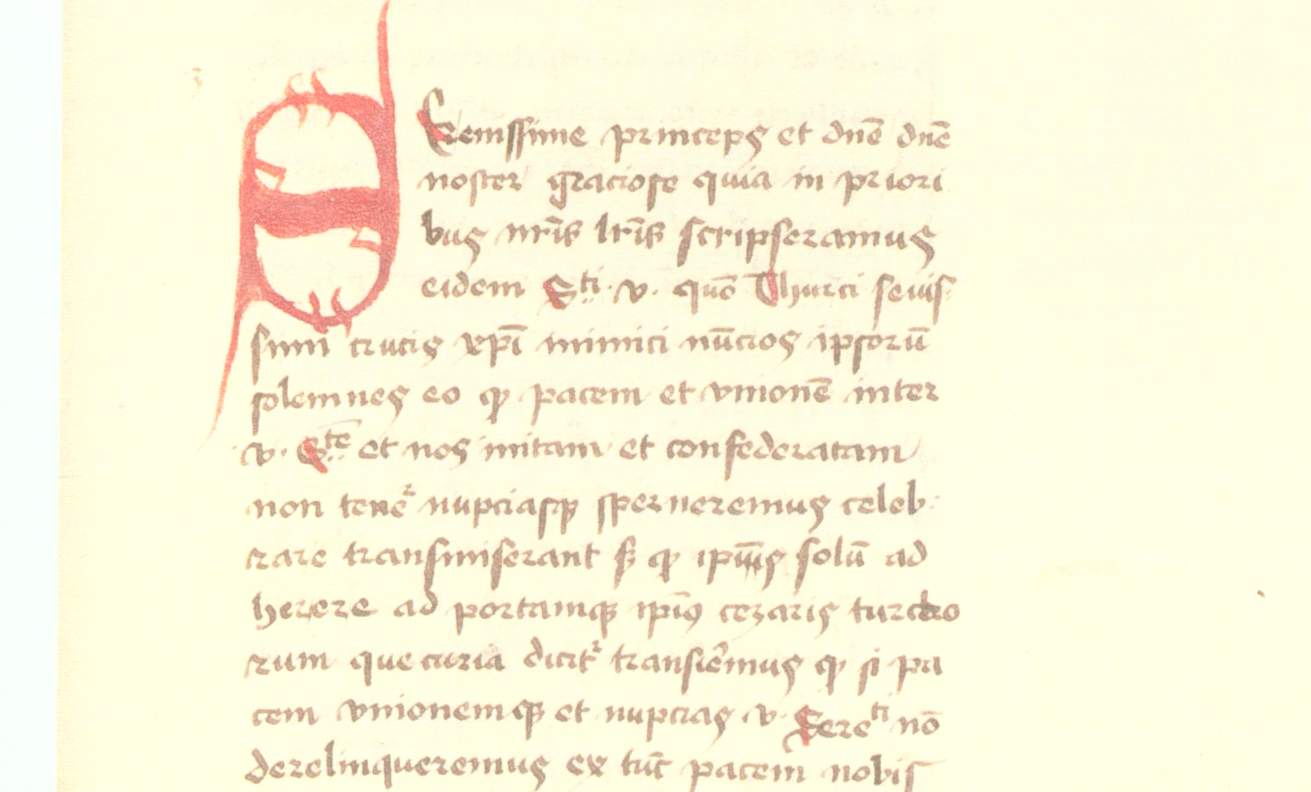 Serenissime princeps et dnē dnē
noster graciose quia in priori
bus nrīs lrīs scripseramus
eidem Sti. v. quō Thurci seuis
simi crucis xpī inimici nūcios ipsorū
solemnes eo qp pacem et vnionē inter
v. Stē et nos initam et confederatam
non tenere nupciasqz sperneremus celeb
rare transmiserant sz qp ipsius solū ad
herere ad portamqz ipius cezaris turcho
rum que curia dicitr transiremus qp si pa
cem vnionemqz et nupcias v. Sereti nō
derelinqueremus ex tūc pacem nobis